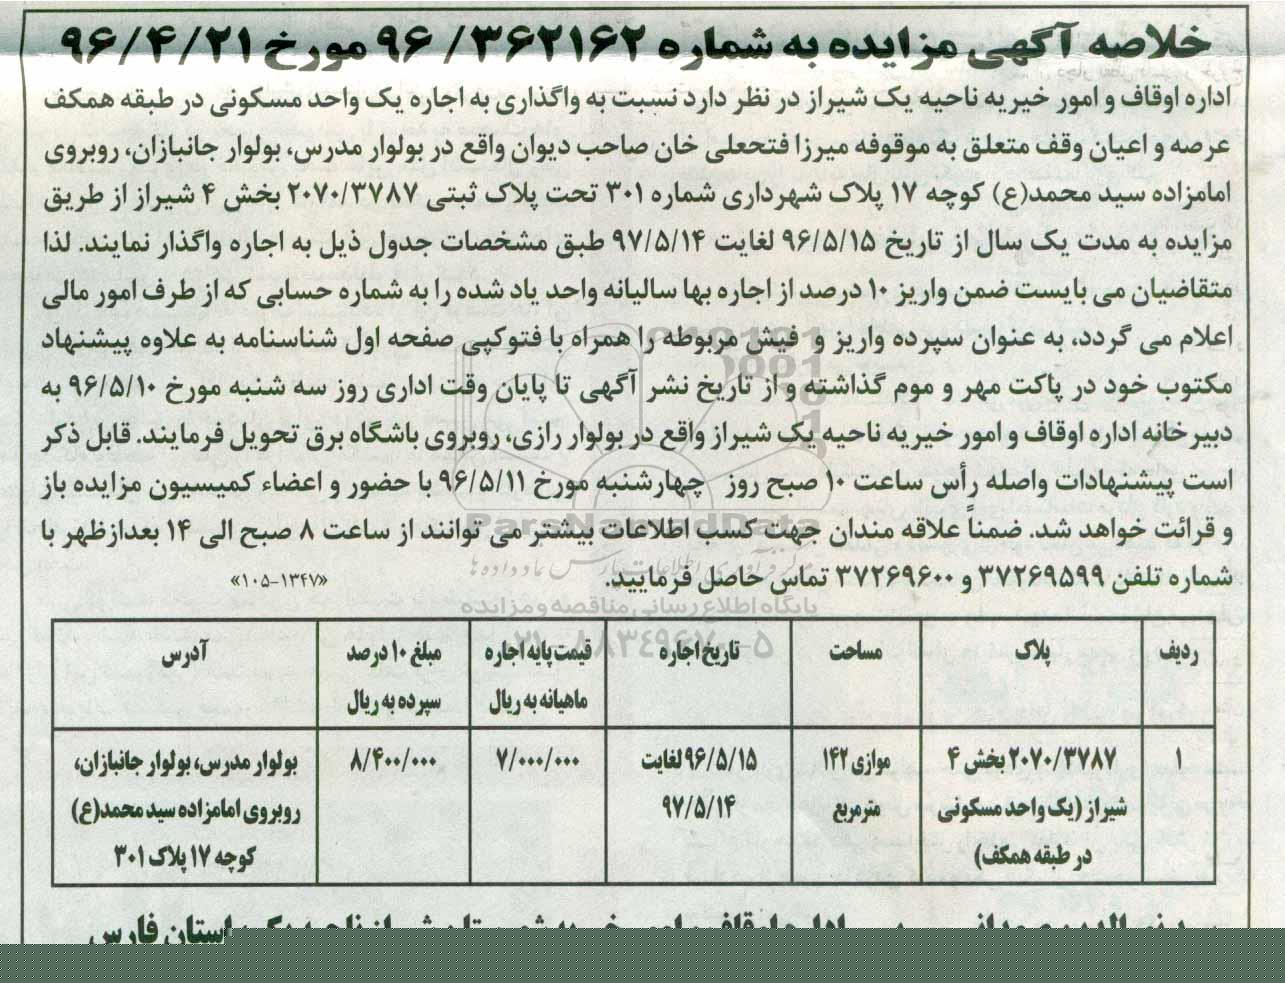 خلاصه آگهی مزایده به شماره ۹۶/۳۶۲۱۶۲ مورخ ۹۶/۴/۲۱
اداره اوقاف و امور خیریه ناحیه یک شیراز در نظر دارد نسبت به واگذاری به اجاره یک واحد مسکونی در طبقه همکف
عرصه و اعیان وقف متعلق به موقوفه میرزا فتحعلی خان صاحب دیوان واقع در بولوار مدرس، بولوار جانبازان، روبروی
امامزاده سید محمد(ع) کوچه ۱۷ پلاک شهرداری شماره ۳۰۱ تحت پلاک ثبتی ۲۰۷۰/۳۷۸۷ بخش ۴ شیراز از طریق
مزایده به مدت یک سال از تاریخ ۹۶/۵/۱۵ لغایت ۹۷/۵/۱۴ طبق مشخصات جدول ذیل به اجاره واگذار نمایند. لذا
متقاضیان می بایست ضمن واریز ۱۰ درصد از اجاره بها سالیانه واحد یاد شده را به شماره حسابی که از طرف امور مالی
اعلام می گردد، به عنوان سپرده واریز و فیش مربوطه را همراه با فتوکپی صفحه اول شناسنامه به علاوه پیشنهاد
مکتوب خود در پاکت مهر و موم گذاشته و از تاریخ نشر آگهی تا پایان وقت اداری روز سه شنبه مورخ ۹۶/۵/۱۰ به
دبیرخانه اداره اوقاف و امور خیریه ناحیه یک شیراز واقع در بولوار رازی، روبروی باشگاه برق تحویل فرمایند. قابل ذکر
است پیشنهادات واصله رأس ساعت ۱۰ صبح روز چهارشنبه مورخ ۹۶/۵/۱۱ با حضور و اعضاء کمیسیون مزایده باز
و قرائت خواهد شد. ضمناً علاقه مندان جهت کسب اطلاعات بیشتر می توانند از ساعت ۸ صبح الی ۱۴ بعدازظهر با
شماره تلفن ۳۷۲۶۹۵۹۹ و ۳۷۲۶۹۶۰۰ تماس حاصل فرمایید.
«۱۰۵-۱۳۴۷»
ParsNamadData
پایگاه اطلاع رسانی مناقصه و مزایده
۰۲۱-۸۸۳۴۹۶۷۰-۵
ردیف پلاک مساحت تاریخ اجاره قیمت پایه اجاره مبلغ ۱۰ درصد آدرس
ماهیانه به ریال سپرده به ریال
۱ ۲۰۷۰/۳۷۸۷ بخش ۴ موازی ۱۴۲ ۹۶/۵/۱۵ لغایت ۷/۰۰۰/۰۰۰ ۸/۴۰۰/۰۰۰ بولوار مدرس، بولوار جانبازان،
شیراز (یک واحد مسکونی مترمربع ۹۷/۵/۱۴ روبروی امامزاده سید محمد(ع)
در طبقه همکف) کوچه ۱۷ پلاک ۳۰۱
استان فارس